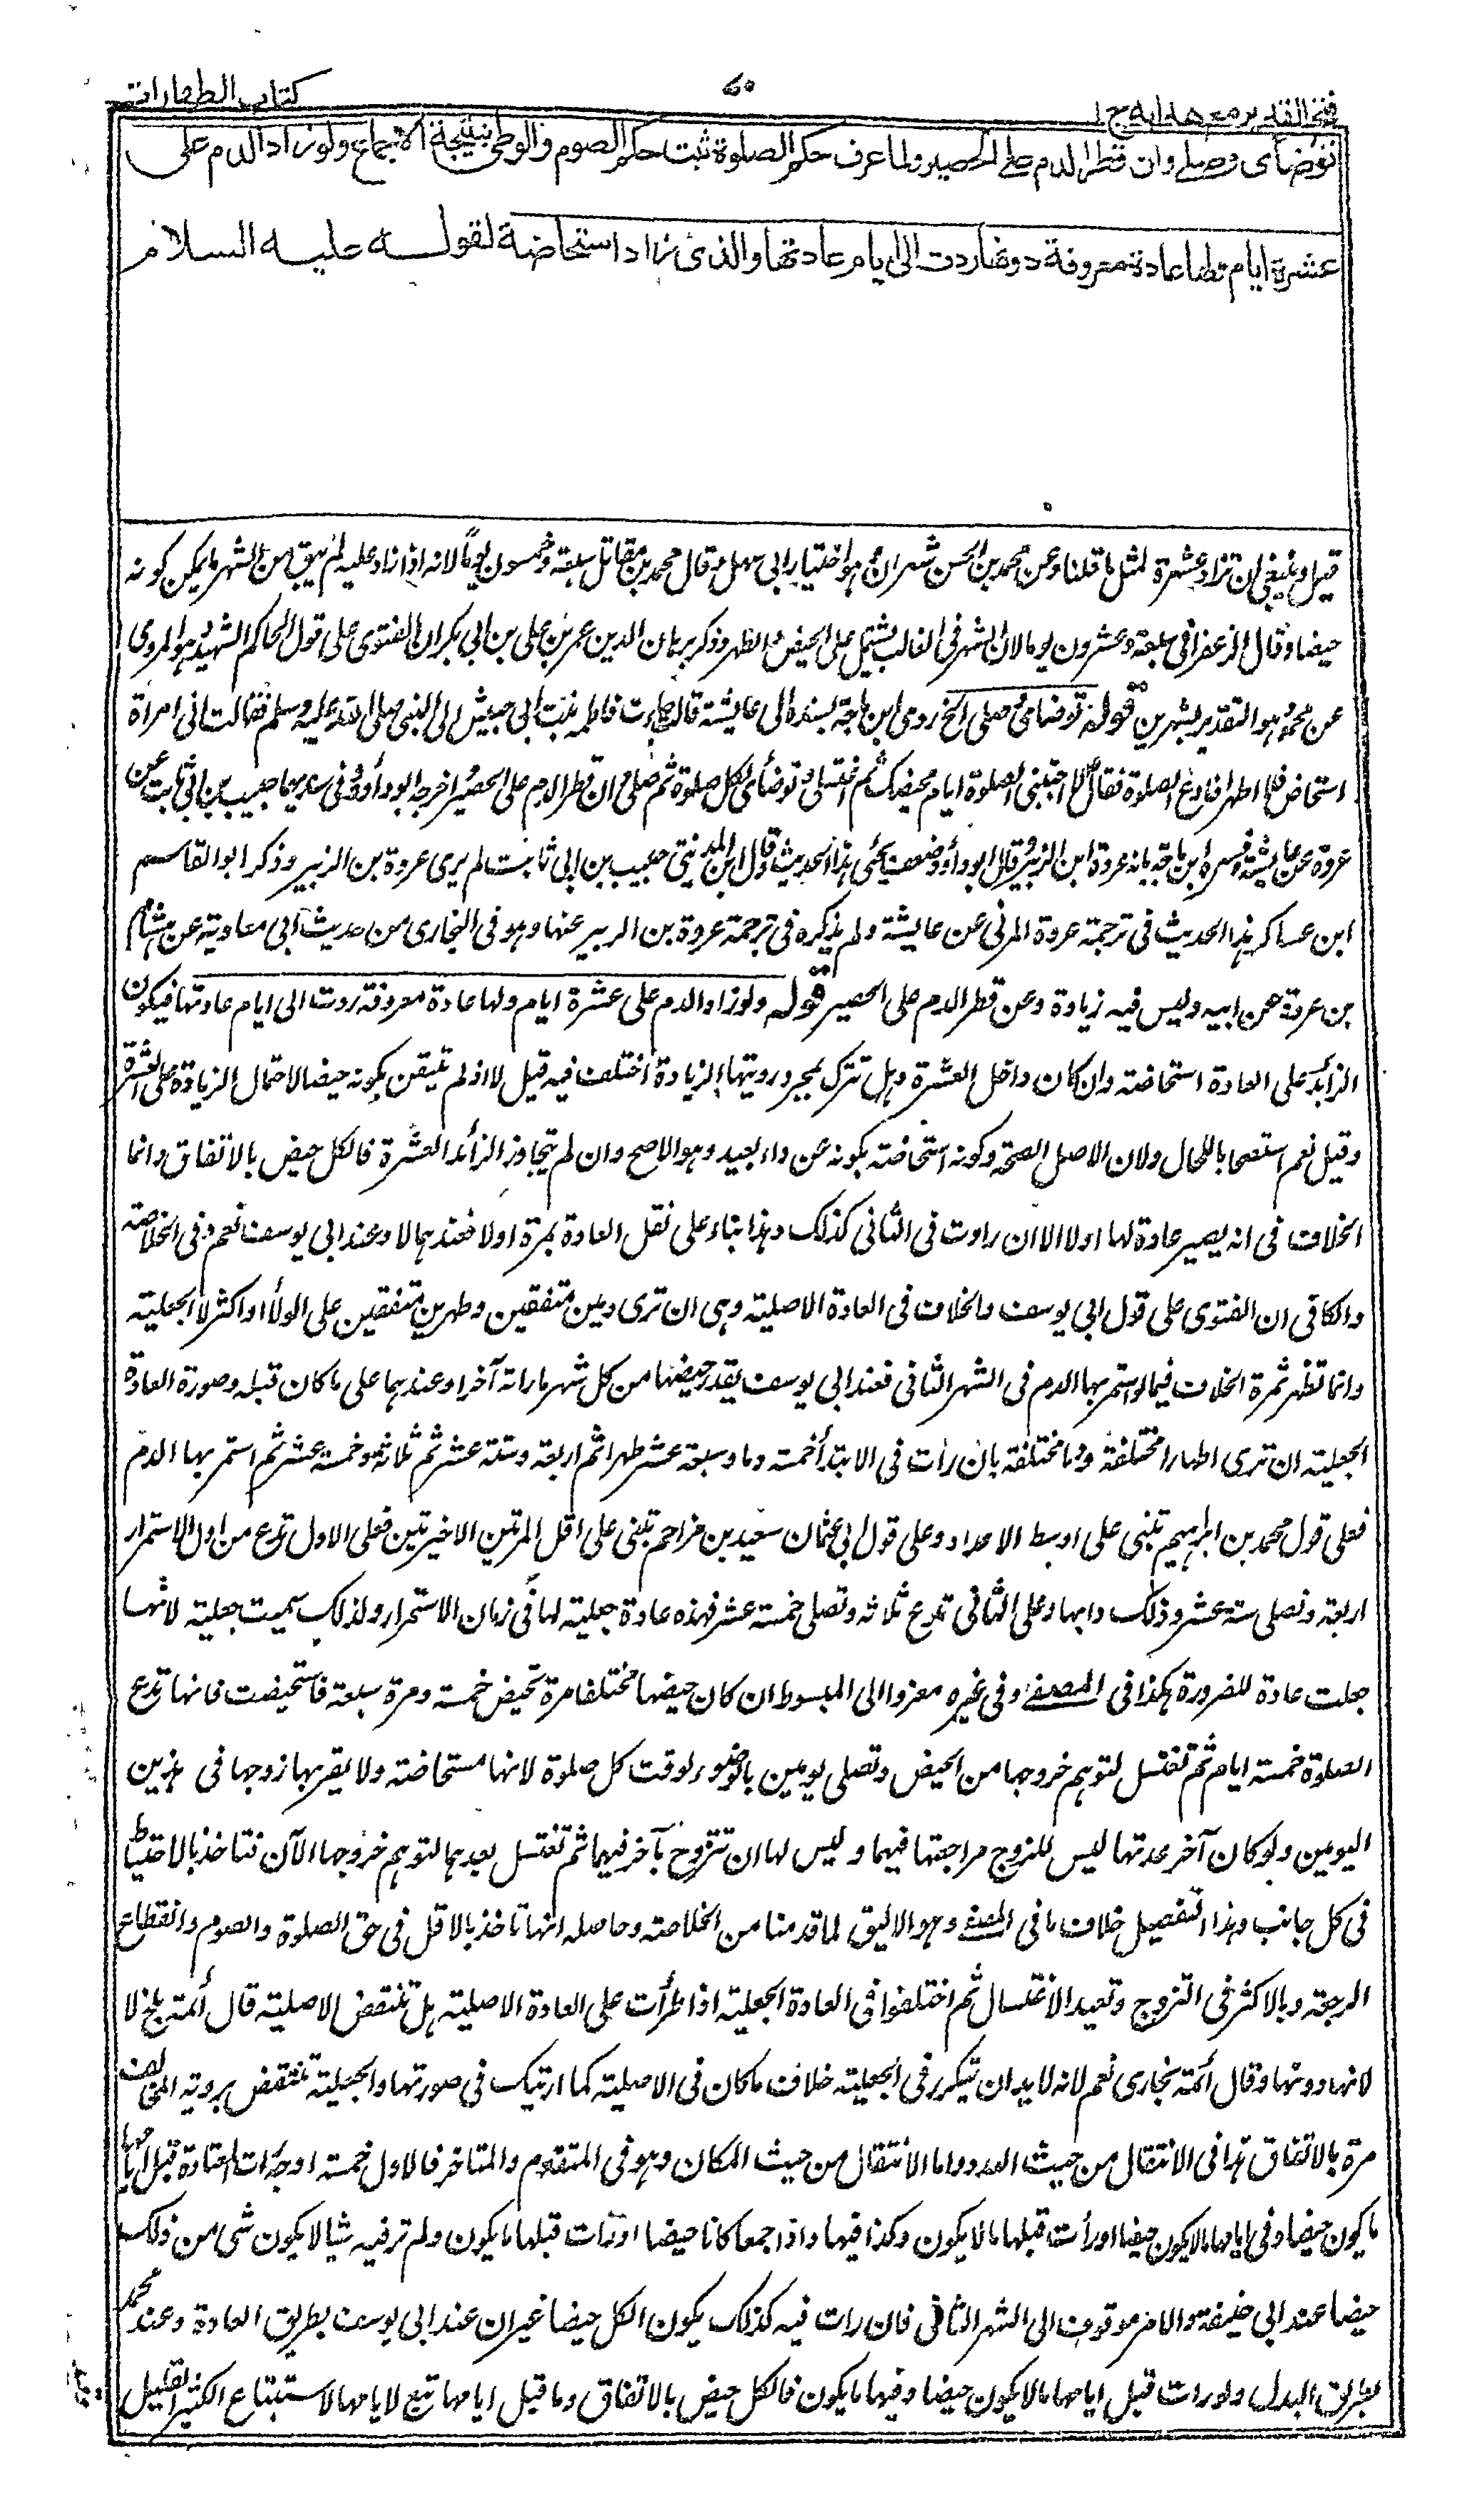 فتح القدير مع هدايه ج ١
٧٥
كتاب الطهارات
توضأى وصلے وان قطر الدم على الحصير ولما عرف حكم الصلوة ثبت حكم الصوم والوطى بنتيجة الاجماع ولو زاد الدم على
عشرة ايام ولها عادة معروفة دونها ردت الى ايام عادتها والذى زاد استحاضة لقوله عليه السلام
قيل وينبغى ان تزاد عشرة لمثل ما قلنا وعن محمد بن الحسن شهران وهو اختيار ابى سهل وقال محمد بن مقاتل سبعة وخمسون يوما لانه اذا زاد عليه لم يبق من الشهر ما يمكن كونه
حيضا وقال الزعفرانى سبعة وعشرون يوما لان الشهر فى الغالب يشتمل على الحيض والطهر وذكر برهان الدين عمر بن على بن ابى بكر ان الفتوى على قول الحاكم الشهيد وهو المروى
عن محمد وهو التقدير بشهرين قوله توضأى وصلى الخ روى ابن ماجة بسنده الى عايشة قالت جاءت فاطمة بنت ابى حبيش الى النبى صلى الله عليه وسلم فقالت انى امرأة
استحاض فلا اطهر افادع الصلوة فقال لا اجتنبى الصلوة ايام محيضك ثم اغتسلى وتوضأى لكل صلوة ثم صلى وان قطر الدم على الحصير اخرجه ابو داود وفى سنديهما حبيب بن ابى ثابت عن
عروة عن عايشة وفسره ابن ماجة بانه عروة ابن الزبير وقال ابو داود ضعف يحيى هذا الحديث وقال ابن المدينى حبيب بن ابى ثابت لم يرى عروة بن الزبير وذكر ابو القاسم
ابن عساكر هذا الحديث فى ترجمة عروة المزنى عن عايشة ولم يذكره فى ترجمة عروة بن الزبير عنها وهو فى البخارى من حديث ابى معاوية عن هشام
بن عروة عن ابيه وليس فيه زيادة وعن قطر الدم على الحصير قوله ولو زاد الدم على عشرة ايام ولها عادة معروفة ردت الى ايام عادتها فيكون
الزائد على العادة استحاضة وان كان داخل العشرة وهل تترك بمجرد رويتها الزيادة اختلف فيه قيل لا اذ لم تتيقن بكونه حيضا لاحتمال الزيادة على العشرة
وقيل نعم استصحابا للحال ولان الاصل الصحة وكونه استحاضة بكونه عن داء بعيد وهو الاصح وان لم يتجاوز الزائد العشرة فالكل حيض بالاتفاق وانما
الخلاف فى انه يصير عادة لها اولا الا ان رأوت فى الثانى كذلك وهذا بناء على نقل العادة بمرة اولا فعندهما لا وعند ابى يوسف نعم وفى الخلاصة
والكافى ان الفتوى على قول ابى يوسف والخلاف فى العادة الاصلية وهى ان ترى دمين متفقين وطهرين متفقين على الولاء او اكثر لا الجعلية
وانما تظهر ثمرة الخلاف فيما لو استمر بها الدم فى الشهر الثانى فعند ابى يوسف يقدر حيضها من كل شهر ما راته آخرا وعندهما على ما كان قبله وصورة العادة
الجعلية ان ترى اطهارا مختلفة ودما مختلفة بان رأت فى الابتداء خمسة دما وسبعة عشر طهرا ثم اربعة وستة عشر ثم ثلاثة وخمسة عشر ثم استمر بها الدم
فعلى قول محمد بن ابراهيم تبنى على اوسط الاعداد وعلى قول ابى عثمان سعيد بن مزاحم تبنى على اقل المرتين الاخيرتين فعلى الاول تدع من اول الاستمرار
اربعة وتصلى ستة عشر وذلك دابها وعلى الثانى تدع ثلاثه وتصلى خمسة عشر فهذه عادة جعلية لها فى زمان الاستمرار ولذلك سميت جعلية لانها
جعلت عادة للضرورة هكذا فى المصفے وفى غيره معزوا الى المبسوط ان كان حيضها مختلفا مرة تحيض خمسة ومرة سبعة فاستحيضت فانها تدع
الصلوة خمسة ايام ثم تغتسل لتوهم خروجها من الحيض وتصلى يومين بالوضوء لوقت كل صلوة لانها مستحاضة ولا يقربها زوجها فى هذين
اليومين ولو كان آخر عدتها ليس للزوج مراجعتها فيهما وليس لها ان تتزوج بآخر فيهما ثم تغتسل بعدهما لتوهم خروجها الآن فتاخذ بالاحتياط
فى كل جانب وهذا التفصيل خلاف ما فى المصفے وهو الاليق لما قدمنا من الخلاصة وحاصله انها تاخذ بالاقل فى حق الصلوة والصوم وانقطاع
الرجعة وبالاكثر فى التزوج وتعيد الاغتسال ثم اختلفوا فى العادة الجعلية اذا طرأت على العادة الاصلية هل تنتقض الاصلية قال أئمة بلخ لا
لانها دونها وقال أئمة بخارى نعم لانه لابد ان تتكرر فى الجعلية خلاف ما كان فى الاصلية كما اريتك فى صورتها والجعلية تنتقض بروية المخالف
مرة بالاتفاق هذا فى الانتقال من حيث العدد واما الانتقال من حيث المكان وهو فى المتقدم والمتاخر فالاول خمسة اوجه رات المعتادة قبل ايامها
ما يكون حيضا وفى ايامها ما لا يكون حيضا او رأت قبلها ما لا يكون وكذا فيها واذا جمعا كانا حيضا او رات قبلها ما يكون ولم تر فيه شيا لا يكون شى من ذلك
حيضا عند ابى حنيفة والامر موقوف الى الشهر الثانى فان رات فيه كذلك يكون الكل حيضا غير ان عند ابى يوسف بطريق العادة وعند محمد
بطريق البدل ولو رات قبل ايامها ما لا يكون حيضا وفيها ما يكون فالكل حيض بالاتفاق وما قبل ايامها تبع لايامها لاستتباع الكثير القليل